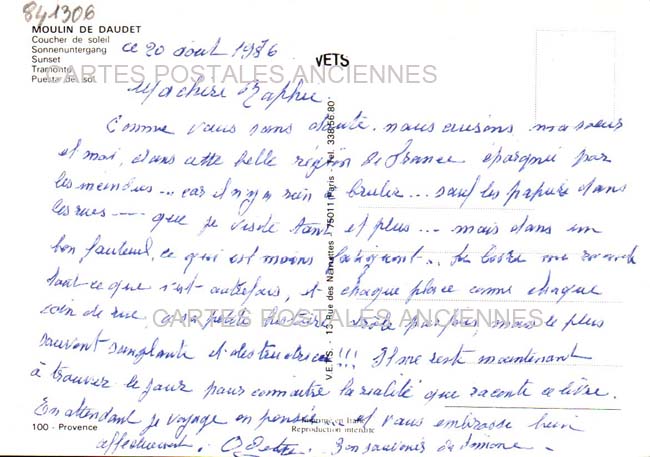 841306
MOULIN DE DAUDET
Coucher de soleil
Sonnenuntergang
Sunset
Tramonto
Puesta del sol
ce 20 aout 1986
VETS
CARTES POSTALES ANCIENNES
Ma chère
Comme vous sans doute, nous cuisons, ma soeur
et moi, dans cette belle région de France épargnée par
les incendies ... car il n'y a rien à bruler ... sauf les papiers dans
les rues --- que je visite tant et plus ... mais dans un
bon fauteuil, ce qui est moins fatigant ..
tout ce que s'est autrefois, et chaque place comme chaque
coin de rue a sa petite histoire, drôle parfois, mais le plus
CARTES POSTALES ANCIENNES
souvent sanglante et destructrice !!! Il me reste maintenant
à trouver le jour pour connaitre la réalité que raconte ce livre.
En attendant je voyage en pensée ... et vous embrasse bien
affectueusement. Bon souvenir de Simone -
V.E.T.S. - 13 Rue des Nanettes - 75011 Paris - Tel. 338.56.80
100 - Provence
Reproduction interdite